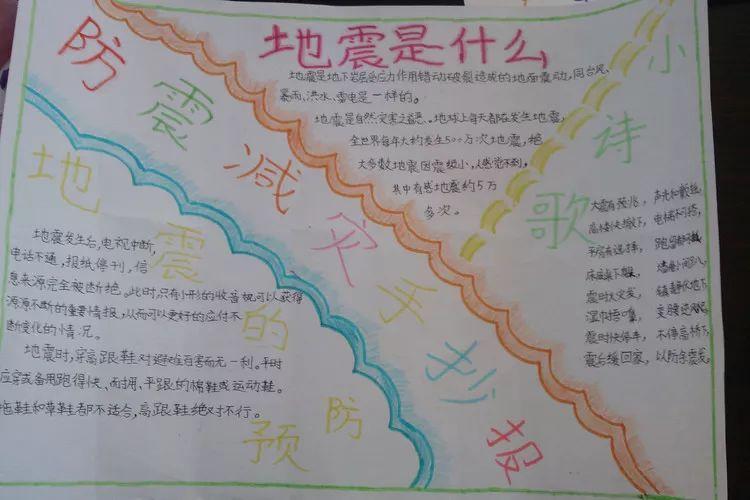 防震减灾手抄报
地震是什么
地震是地下岩层受应力作用错动破裂造成的地面震动,同台风、
暴雨、洪水、雷电是一样的。
地震是自然灾害之一,地球上每天都在发生地震,
全世界每年大约发生500万次地震,绝
大多数地震因震级小,人感觉不到,
其中有感地震约5万
多次。
小诗歌
大震有预兆,声光和
高楼快撤下,电梯不可搭,
平房有选择,跑留
床底桌下
震时火灾发,镇静伏地下
湿巾捂口
震时快停车,不停高桥下
震后缓回家,以防余震
地震的预防
地震发生后,电视中断,
电话不通,报纸停刊,信
息来源完全被断绝。此时,只有小形的收音机可以获得
源源不断的重要情报,从而可以更好的应付不
断变化的情况。
地震时,穿高跟鞋对避难百害而无一利。平时
应穿或备用跑得快、耐拥、平跟的棉鞋或运动鞋。
拖鞋和草鞋都不适合,高跟鞋绝对不行。